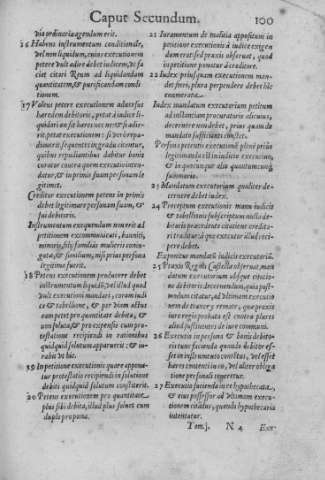 Caput Secundum. 100
via ordinaria agendum erit.
16 Habens instrumentum conditionale,
vel non liquidum, cuius executionem
petere vult adire debet iudicem, vt fa
ciat citari Reum ad liquidandam
quantitatem, & purificandam condi
tionem.
17 Volens petere executionem aduersus
haredem debitoris, petat à iudice li-
quidari an sit hares nec ne: & ad ie-
rit, petat executionem: si verò repu-
diauerit, sequentes in gradu citentur,
quibus repudiantibus datur bonis
curator contra quem executio intra-
datur, & in primis suam personam le
gitimet.
Creditor executionem petens in primis
debet legitimare personam suam, &
sui debitoris.
Instrumentum exequendum nemo ad
petitionem excommunicati, banniti,
minoris, filij familias mulieris coniu-
gata, & similium, nisi prius persona
legitima fuerit.
18 Petens executionem producere debet
instrumentum liquidũ, vel illud quod
vult executioni mandari, coram iudi
ce & tabellione, & per viam actus
eam petet pro quantitate debita, &
non soluta, & pro expensis cum pro-
testatione recipiendi in rationibus
quidquid solutum apparuerit: & for-
malis vt hic.
19 In petitione executionis quare appona-
tur protestatio recipiendi in solutionem
debiti quidquid solutum constiterit.
20 Petens executionem pro quantitate
plus sibi debita, illud plus soluet cum
duplo propona.
21 Iuramentum de malitia appositum in
petitione executionis à iudice exigen
dum erat: sed praxis obseruat, quod
in petitione ponitur & creditur.
22 Index priusquam executionem man-
det fieri, plura perpendere debet hîc
enumerata.
Iudex mandatum executiuum petitum
ad instantiam procuratoris alicuius,
decernere non debet, prius quam de
mandato sufficienti constet.
Persona petentis executionẽ plenè priùs
legitimanda est in iudicio executiuo,
& in quocunque alio quantumcunq;
summario.
23 Mandatum executiuum qualiter de-
cernere debet iudex.
24 Praeceptum executionis manu iudicis
& tabellionis subscriptum nullo de-
bitoris praecedente citatione credito-
ri traditur, à quo executor illud reci-
pere debet.
Exponitur mandatũ iudicis executiuũ.
25 Praxis Regni Castella obseruat, man
datum executiuum absque citatio-
ne debitoris decernendum, quia post-
modum citatur, ad vltimam executio
nem de tranœ y remate, qua praxis
iure regio probata est contra plures
aliud sustinentes de iure communi.
26 Executio in persona & bonis debito-
ris tunc facienda quando debitor es-
set in instrumento constitus, vel esset
hares contentus in eo, vel alter obliga
tione personali teneretur.
27 Executio facienda in re hypothecata,
& eius possessor ad vltimam execu-
tionem citatus, quando hypothecaria
intentatur.
Tom.j. N 4 Exe-